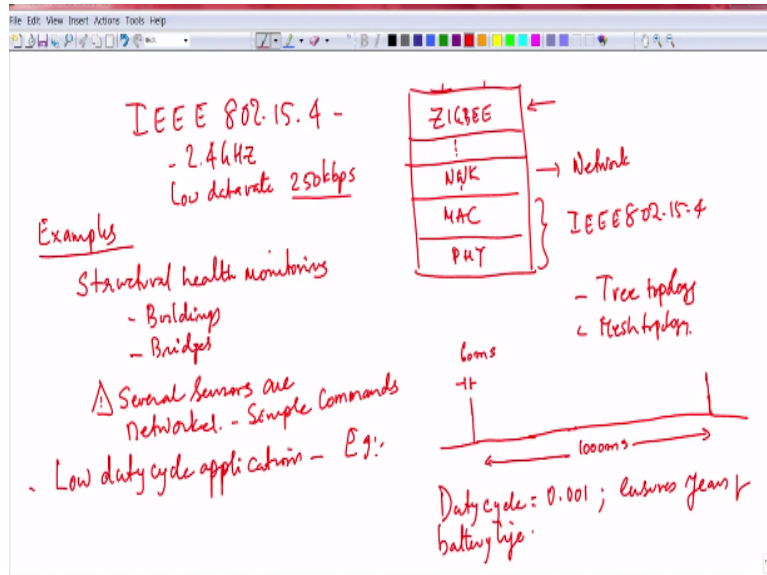 File Edit View Insert Actions Tools Help
IEEE 802.15.4 -
- 2.4GHZ
Low datarate 250kbps
Examples
Structural health monitoring
- Buildings
- Bridges
Several Sensors are
Networked. - Simple Commands
. Low duty cycle application - Eg:-
ZIGBEE
NWK
MAC
PHY
→ Network
IEEE802.15.4
- Tree topology
- Mesh topology.
1000ms
Duty cycle = 0.001 ; ensures years of
battery life.